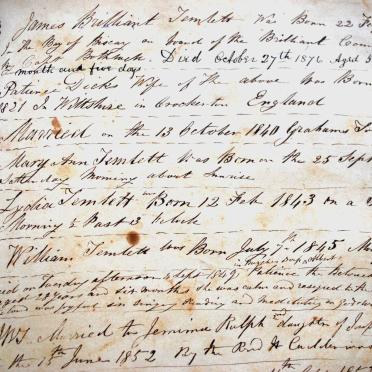 James Brilliant Temlett Was Born 22 Feb
In the Bay of Biscay on board of the Brilliant Com
Capt Died October 27th 1876 Aged 5
month and five days
Patience Dicks Wife of the above Was Born
1821 In Wiltshire in Crockerton England
Married on the 13 October 1840 Grahams To
Mary Ann Temlett Was Born on the 25 Sept
Satterday Morning about Sunrise
Lydia Temlett Born 12 Feb 1843 on a
Morning ½ Past 3 Oclock
William Temlett Was Born July 7th 1845
on Tuesday afternoon 4 Sept 1849 Patience the beloved
aged 28 years and six months she was calm and resigned to the
and was singing Reading and meditating on
Married to Jemima Ralph daughter of
the 15th June 1852 By the Revd H Calderwood